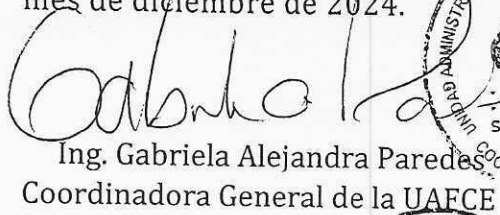 mes de diciembre de 2024.
UNIDAD ADMINISTR
Ing. Gabriela Alejandra Paredes
Coordinadora General de la UAFCE